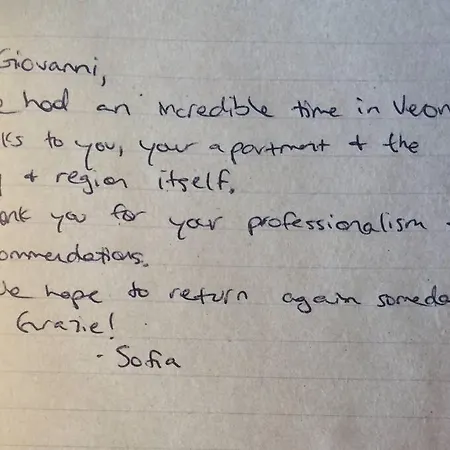 Giovanni,
had an incredible time in Veron
ks to you, your apartment + the
+ region itself.
ank you for your professionalism +
ommendations.
We hope to return again someda
Grazie!
- Sofia